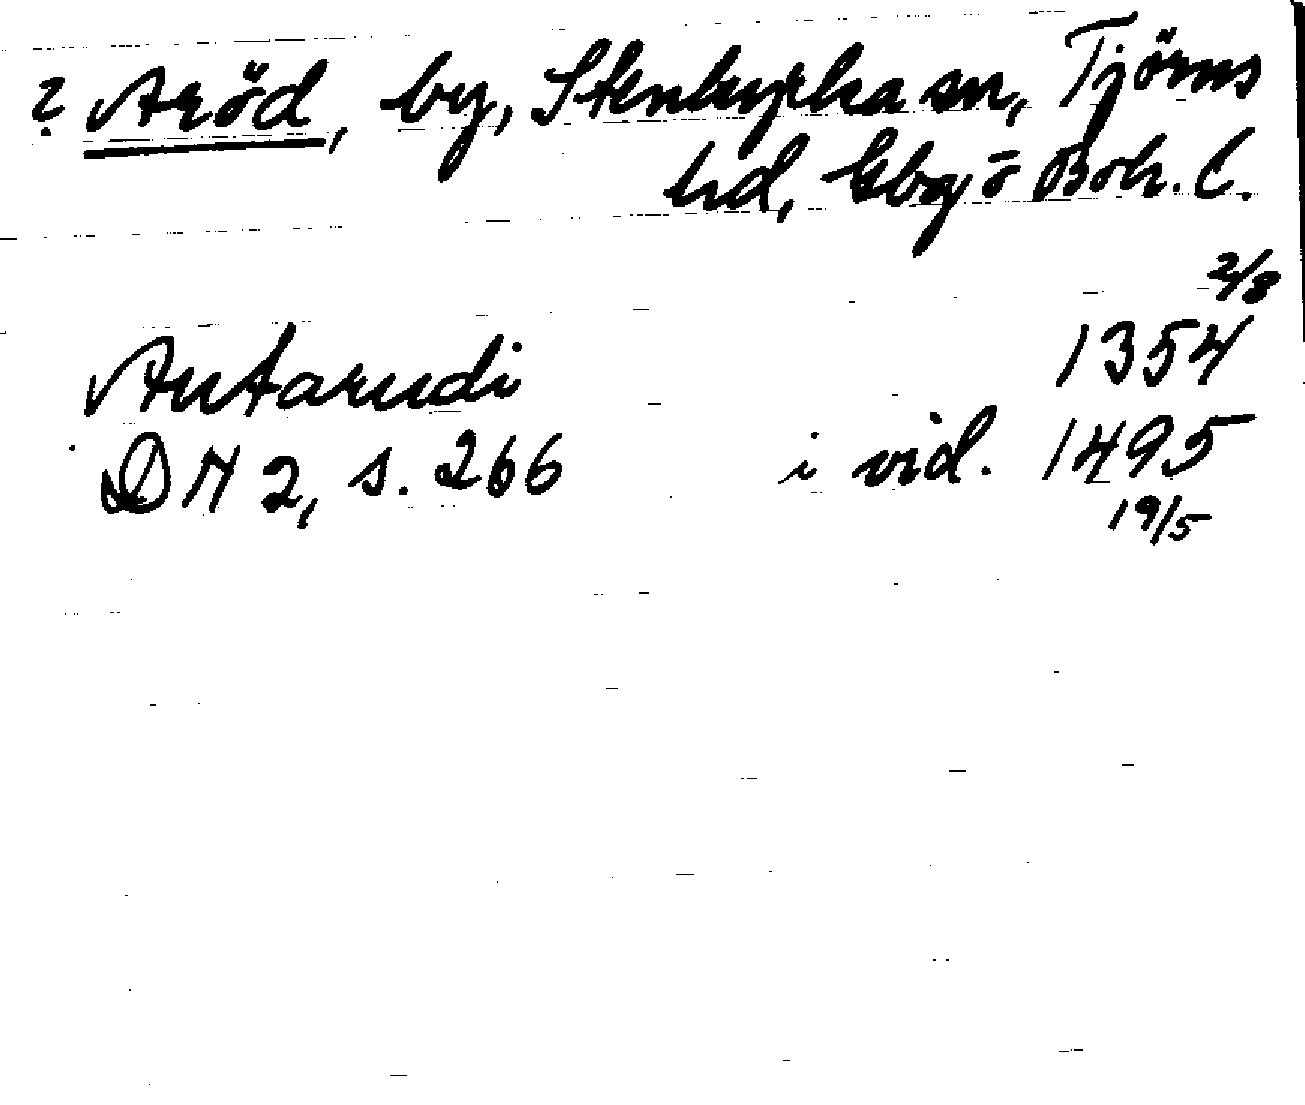 ? Aröd, by, Stenkyrka sn, Tjörns
hd, Gbg o Boh. l.
2/8
Autarudi 1354
DN 2, s. 266 i vid. 1495
19/5